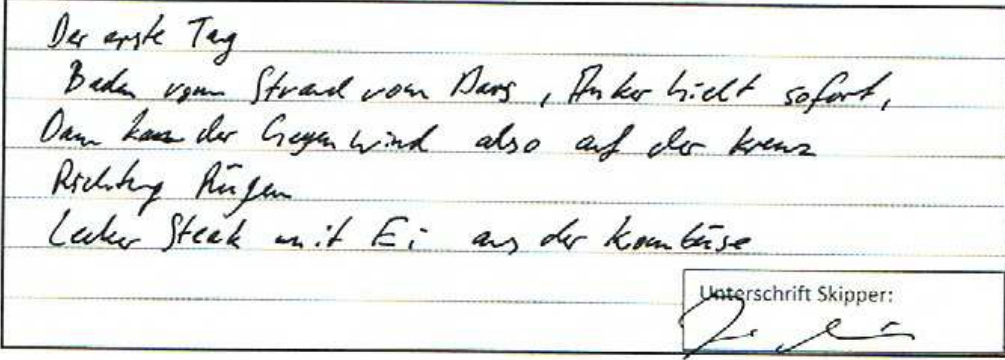 Der erste Tag
Baden vorm Strand vom Dars, Anker hielt sofort,
Dann kam der Gegenwind also auf der Kreuz
Richtung Rügen
Lecker Steak mit Ei aus der Kombüse
Unterschrift Skipper: